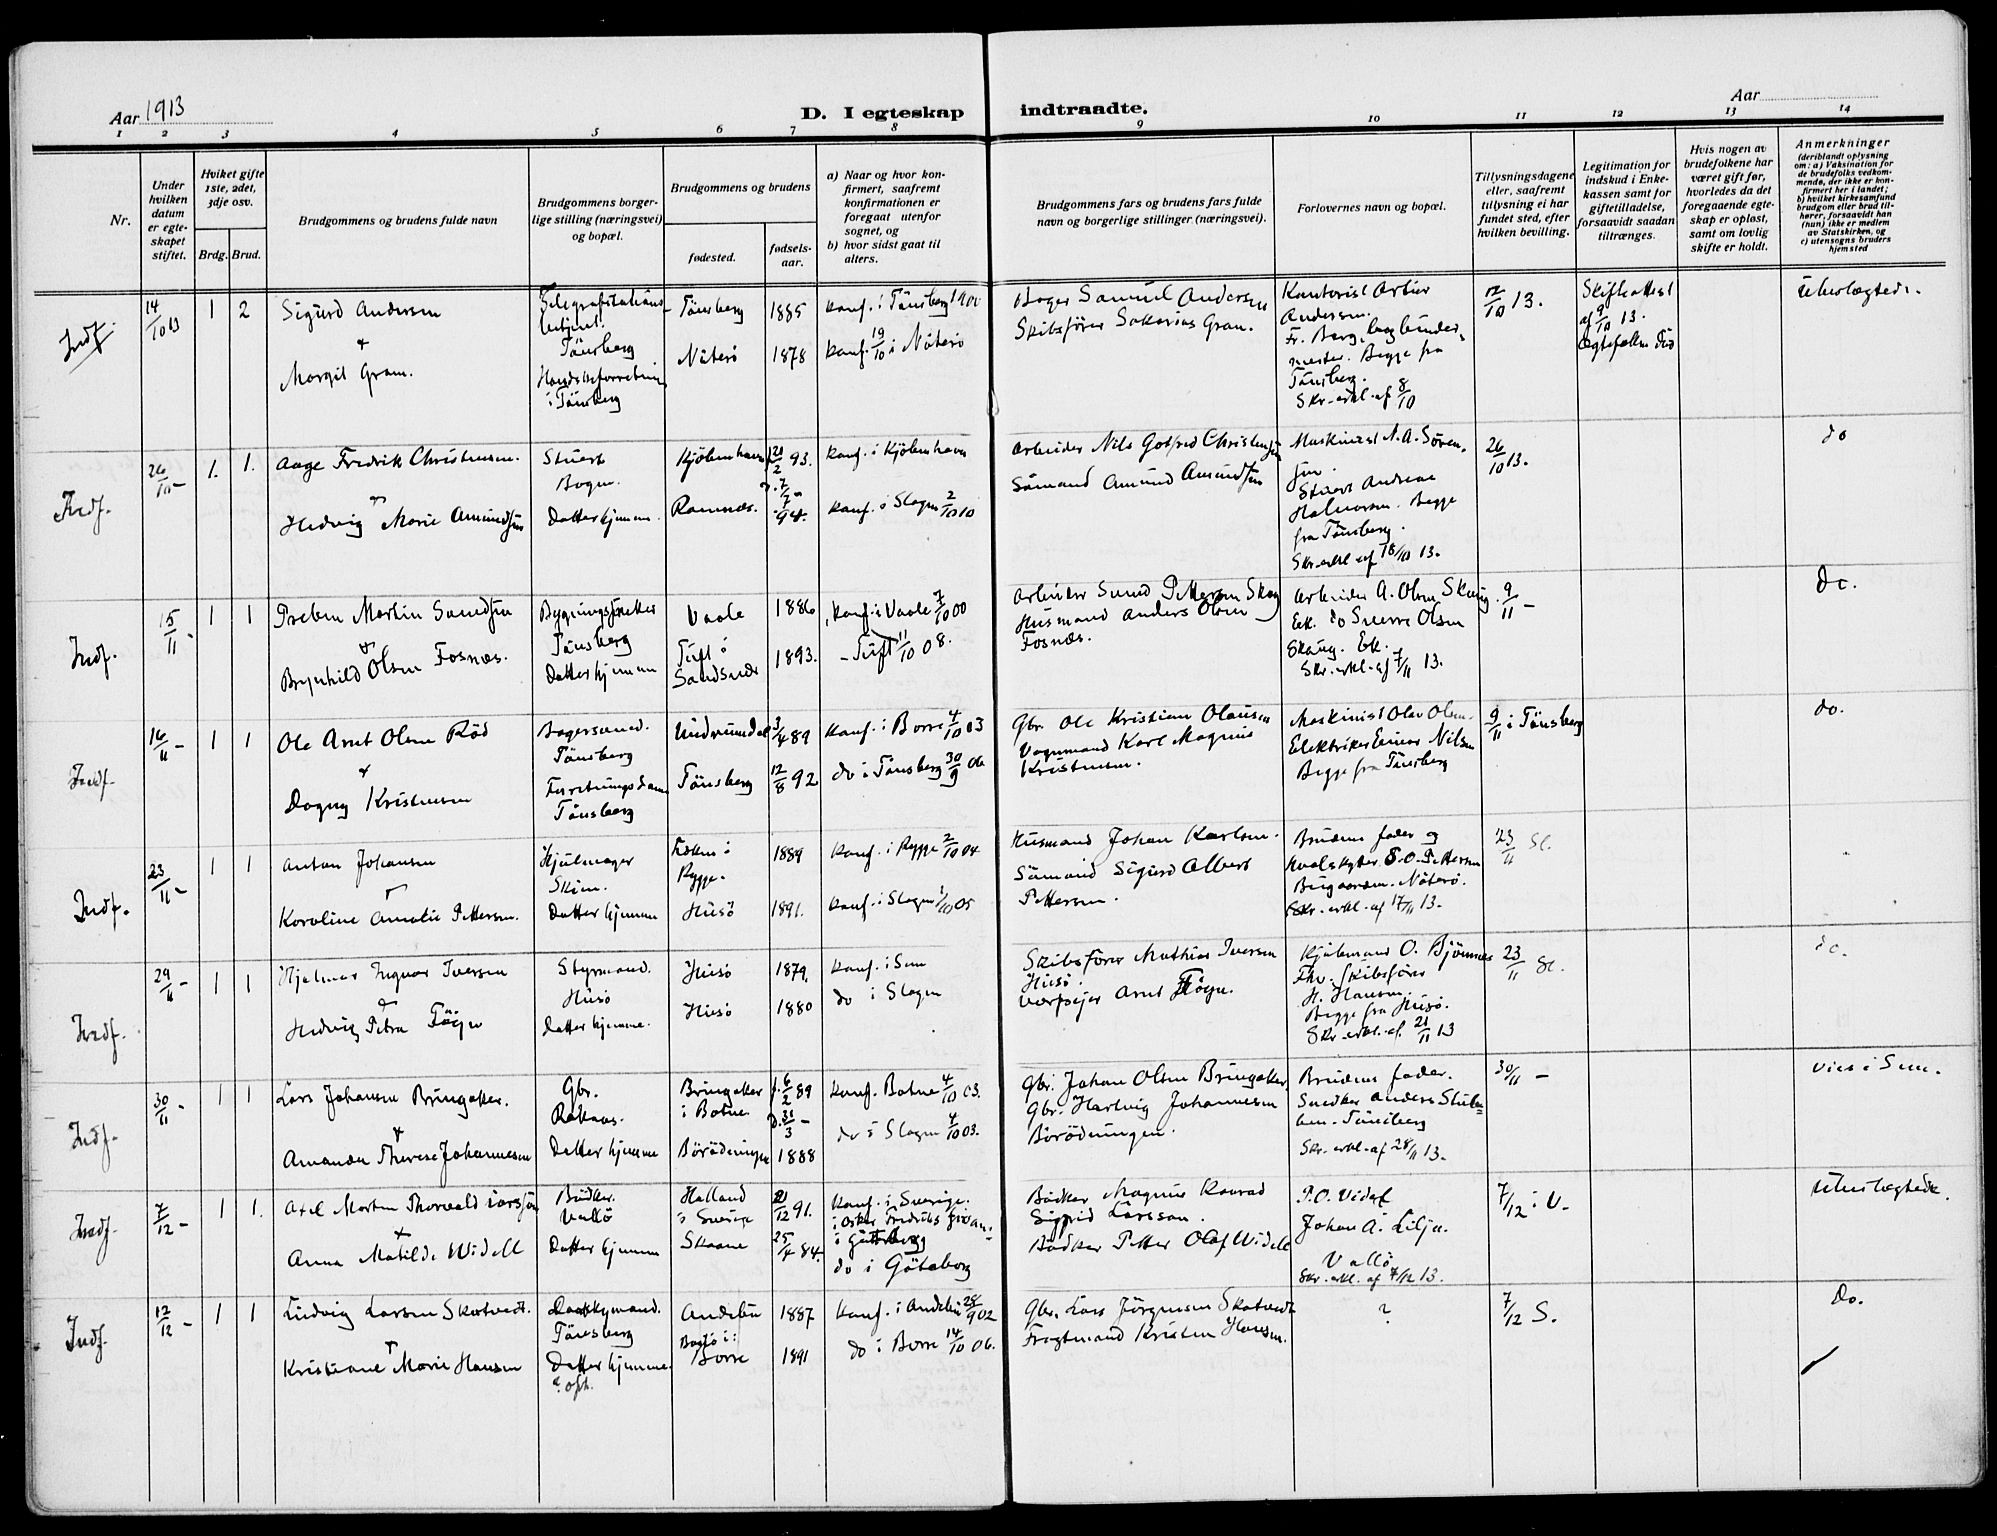 Aar 1913
D. I egteskap indtraadte.
Aar
1 2 3 4 5 6 7 8 9 10 11 12 13 14
Nr.
Under hvilken datum er egteskapet stiftet.
Hviket gifte 1ste, 2det, 3dje osv.
Brdg. Brud.
Brudgommens og brudens fulde navn
Brudgommens borgerlige stilling (næringsvei) og bopæl.
Brudgommens og brudens
fødested.
fødselsaar.
a) Naar og hvor konfirmert, saafremt konfirmationen er foregaat utenfor sognet, og
b) hvor sidst gaat til alters.
Brudgommens fars og brudens fars fulde navn og borgerlige stillinger (næringsvei).
Forlovernes navn og bopæl.
Tillysningsdagene eller, saafremt tillysning ei har fundet sted, efter hvilken bevilling.
Legitimation for indskud i Enkekassen samt for giftetilladelse, forsaavidt saadan tiltrænges.
Hvis nogen av brudefolkene har været gift før, hvorledes da det foregaaende egteskap er opløst, samt om lovlig skifte er holdt.
Anmerkninger
(deriblandt oplysning om: a) Vaksination for de brudefolks vedkommende, der ikke er konfirmert her i landet; b) hvilket kirkesamfund brudgom eller brud tilhører, forsaavidt han (hun) ikke er medlem av Statskirken, og c) utensogns bruders hjemsted
Indf. 14/10 13 1 2
Sigurd Andersen
+
Margit Gran.
Telegrafstations
betjent.
Tönsberg
i Tönsberg
Tönsberg 1885
Nöterö 1878
konf. i Tönsberg
konf. 19/10 i Nöterö
Bager Samuel Andersen
Skibsförer Sakarias Gran.
Kontorist Artur
Andersen.
Fr. Berg, bogbinder-
mester. Begge fra
Tönsberg.
Skr.-erkl. af 8/10
12/10 13.
Skifteattest
af 9/10 13.
Ubeslægtede.
Indf. 26/10 - 1. 1.
Aage Fredrik Christensen.
+
Hedvig Marie Amundsen
Stuert
Bogen.
Datter hjemme.
Kjöbenhavn
Ramnæs.
konf. i Kjöbenhavn
konf. i Slagen 2/10 10
Arbeider Nils Gotfred Christensen
Sömand Amund Amundsen
Maskinist N. A. Sören-
sen.
Stuert Andreas
Halvorsen. Begge
fra Tönsberg.
Skr-erkl af 18/10 13.
26/10 13.
do
Indf. 15/11 - 1 1
Preben Martin Sundsen
+
Brynhild Olsen Fosnæs.
Bygningssnekker
Tönsberg
Datter hjemme
Vaale 1886
Tuft i
Sandsvær 1893.
konf. i Vaale 7/10 00
- Tuft 11/10 08.
Husmand Anders Olsen
Fosnæs.
Arbeider A. Olsen Skaug.
Ek. do Sverre Olsen
Skaug. Ek.
Skr.-erkl. af 7/11 13.
9/11 -
do.
Indf. 16/11 - 1 1
Ole Arnt Olsen Röd
+
Dagny Kristensen
Bagersvend.
Tönsberg
Forretningsdame
Tönsberg
Undrumdal 3/4 89
Tönsberg 12/8 92
konf. i Borre 4/10 03
do i Tönsberg 30/9 06
Gbr. Ole Kristian Olausen
Vognmand Karl Magnus
Kristensen.
Maskinist Olav Olsen.
Elektriker Einar Nilsen
Begge fra Tönsberg
9/11 i Tönsberg
do.
Indf. 23/11 - 1 1
Anton Johansen
+
Karoline Amalie Pettersen.
Hjulmager
Datter hjemme
Rygge. 1889
Husö 1891.
konf. i Rygge 2/10 04
konf. i Slagen 1/10 05
Husmand Johan Karlsen.
Sömand Sigurd Albert
Pettersen.
Brudens fader og
Hvalskytter S. O. Pettersen
Nöterö.
Skr.-erkl.-af 17/11 13.
23/11 Sl.
Indf. 29/11 - 1 1
Hjalmar Ingvar Iversen
+
Hedvig Petra Fögn
Styrmand.
Husö
Datter hjemme.
Husö 1879.
Husö 1880
konf. i Sem
do i Slagen
Skibsförer Mathias Iversen
Husö.
Verfseier Arnt Fögn.
Kjöbmand O. Bjönnes
Fhv. Skibsförer
H. Hansen.
Begge fra Husö.
Skr.-erkl.-af. 21/11 13
23/11 Sl.
do.
Indf. 30/11 - 1 1
Lars Johansen Bringaker.
+
Amanda Therese Johannesen
Gbr.
Datter hjemme
Bringaker
i Botne
6/2 89
1888
konf. Botne 4/10 03.
do i Slagen 4/10 03.
Gbr. Johan Olsen Bringaker.
Gbr. Hartvig Johannesen
Brudens fader.
Snedker Anders
Tönsberg
Skr.-erkl.-af 28/11 13.
30/11 -
Vies i Sem.
Indf. 7/12 - 1 1.
Axel Morten Thorvald Larssön
+
Anna Matilde Widell
Bödker.
Vallö
Datter hjemme
Halland
i Sverige
Skaane
25/4 84.
konf. i Sverige.
do i Göteborg
Bödker Magnus Konrad
Sigfrid Larsson.
Bödker Petter Olof Widell
P.O. Videl
Johan A. Lilja.
Vallö
Skr.-erkl. af 7/12 13.
7/12 i V.
Ubeslægtede.
Indf. 12/12 - 1 1
Ludvig Larsen Skatvedt.
+
Kristiane Marie Hansen
Tönsberg
Datter hjemme.
Andebu 1887
Borre 1891
konf. i Andebu 28/9 02
do i Borre 14/10 06.
Gbr. Lars Jörgensen Skatvedt
Fragtmand Kristen Hansen.
?
7/12 S.
Do.